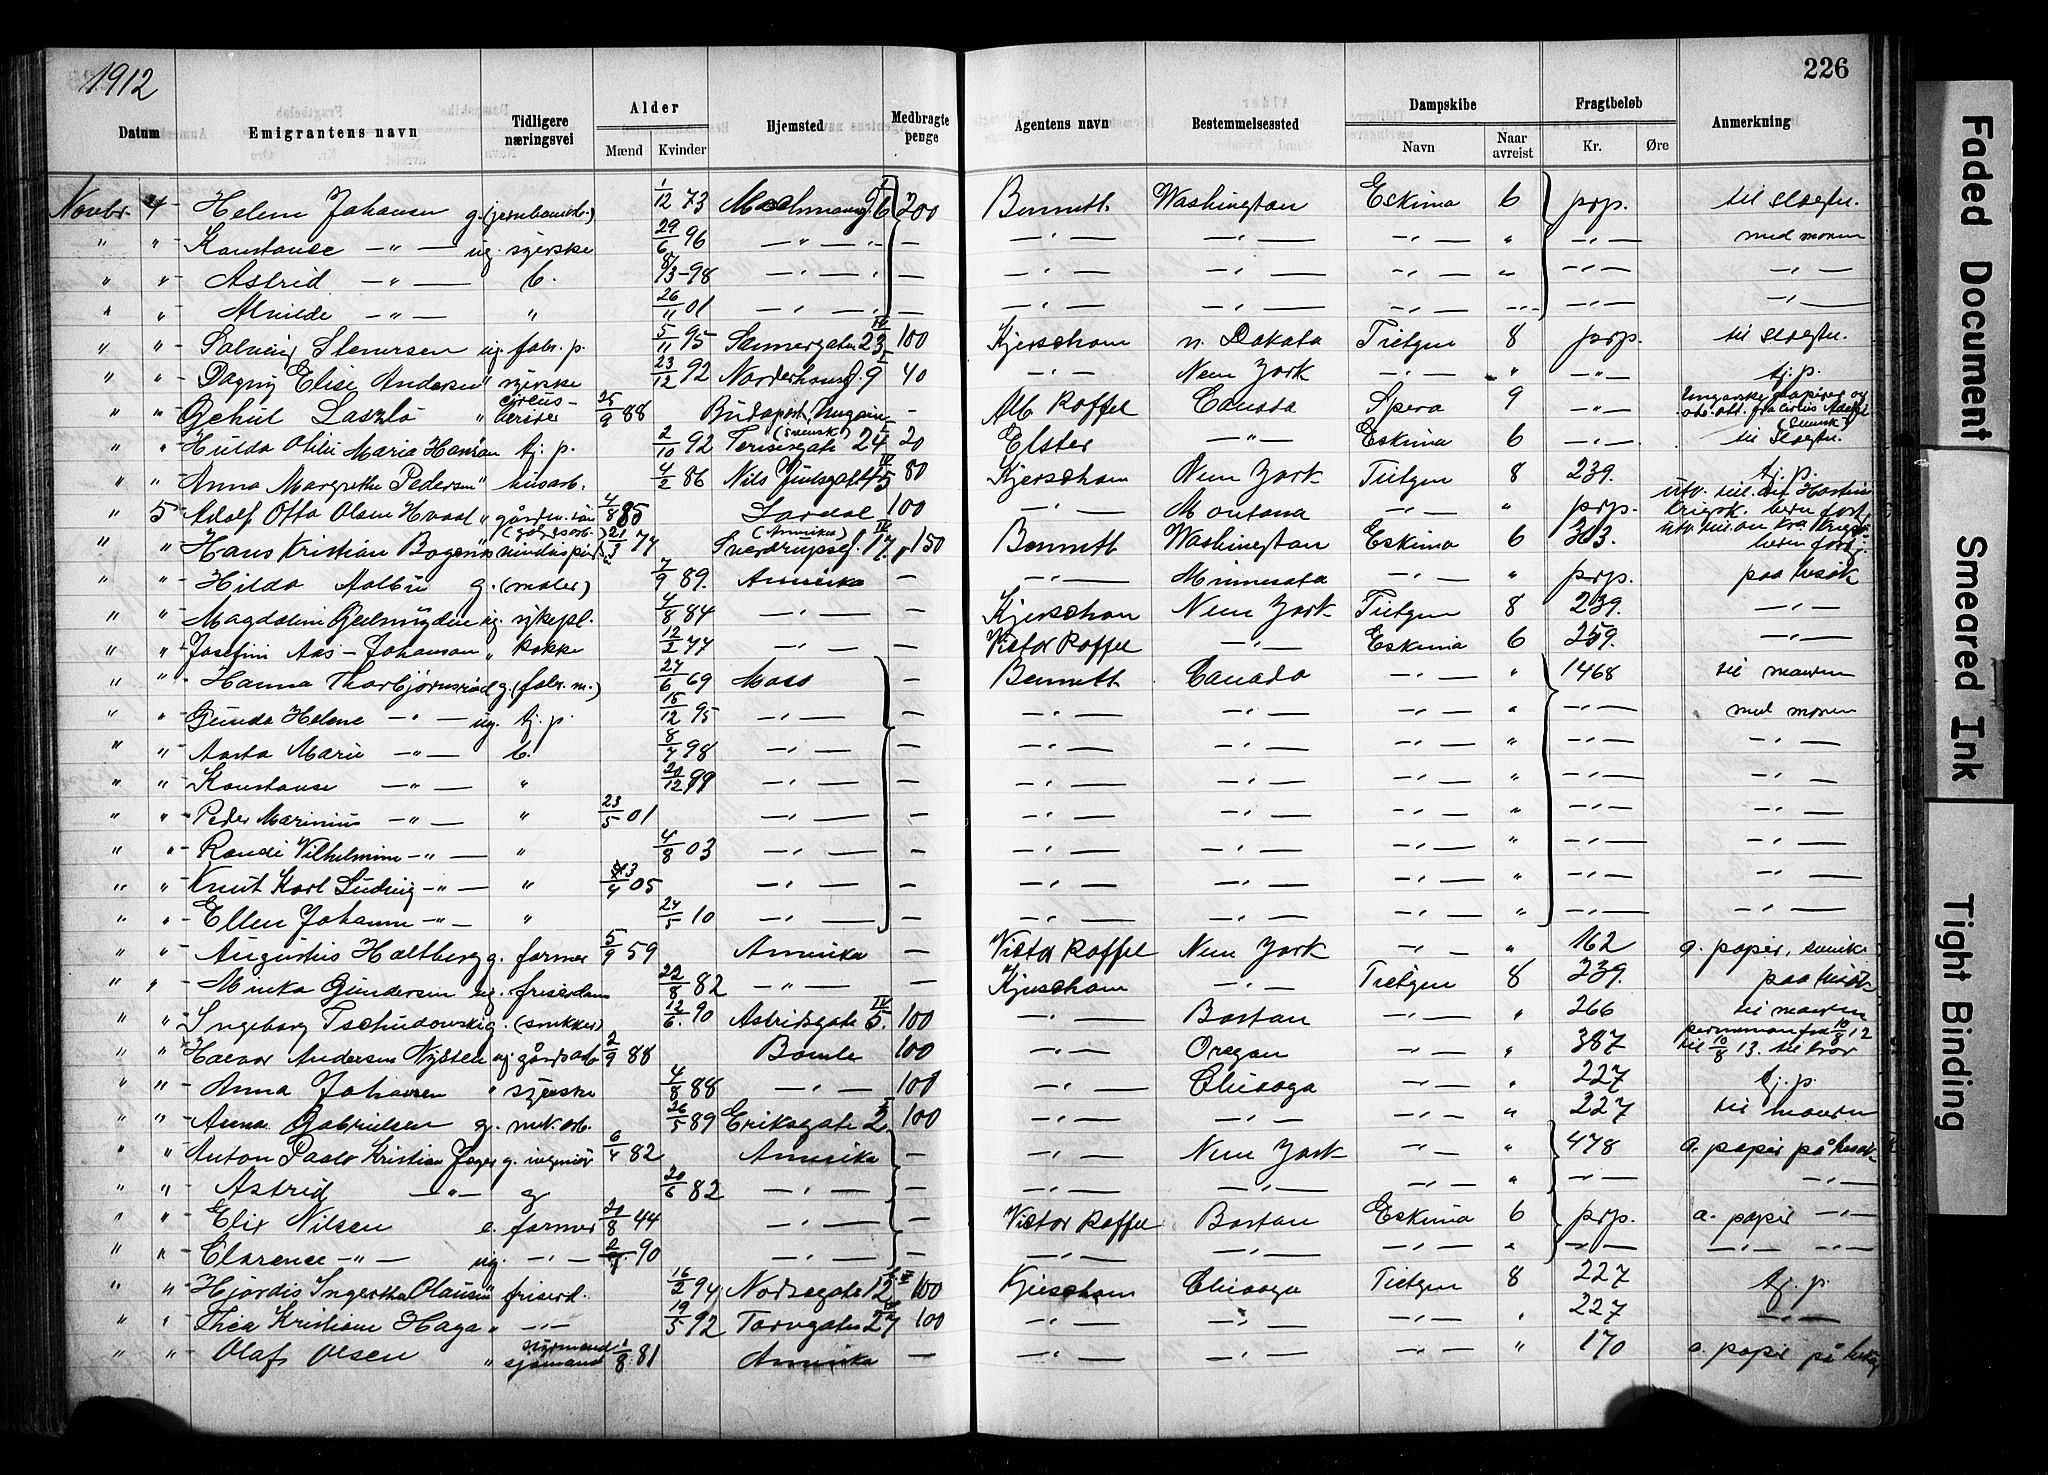 1912
226
Datum Emigrantens navn Tidligere næringsvei Alder Mænd Kvinder Hjemsted Medbragte penge Agentens navn Bestemmelsessted Dampskibe Navn Naar avreist Fragtbeløb Kr. Øre Anmerkning
Novbr. 4 Helene Johansen g. (jernbanearb.) 1/12 73 200 Bennett Washington Eskimo 6 prp. til slægtn.
" " Konstanse —"— ug. syerske 29/6 96 —"— — —"— —"— —"— " —"— med moren
" " Astrid —"— b. 98 —"— — —"— —"— —"— " —"— —"—
" " Alvilde —"— " 26/11 01 —"— — —"— —"— —"— —"— —"— —"—
" " Solveig Stenersen ug. fabr. p. 5/11 95 Sannergaten 23 IV 100 Kjerschow n. Dakota Tietgen 8 prp. til slægtn.
" " Dagny Elise Andersen " syerske 23/12 92 Norderhousg. 9 I 40 —"— New York —"— " —"— tj. p.
" " Gehul Laszlo " circus- 25/9 88 Budapest Ungarn — Alb Roffel Canada Spero 9 —"—
" " Hulda Otilie Maria Hansson tj. p. 2/10 92 Teresesgate (svensk) 24 I 20 Elster —"— Eskimo 6 —"— til slægtn. (svensk)
" " Anna Margrethe Pedersen " husarb. 4/2 86 Nils Juelsgate 45 IV 80 Kjerschow New York Tietgen 8 239. tj. p.
" 5 Adolf Otto Olsen Hvaal " 4/8 85 Lardal 100 —"— Montana —"— " prp.
" " Hans Kristian Bogen 21/3 74 Sverdrupsg. 17 IV (Amerika) 150 Bennett Washington Eskimo 6 313.
" " Hilda Aalbu g. (maler) 7/9 89. Amerika — —"— Minnesota —"— " prp. paa besøk
" " Magdalene Gulmyden ug. sykepl. 4/8 84 —"— — Kjerschow New York Tietgen 8 239. —"—
" " Josefine Aas-Johansen " kokke 12/2 77 —"— — Victor Roffel —"— Eskimo 6 259. —"—
" " Hanna Thorbjørnsrød g. (fabr. m.) 27/6 69 Moss — Bennett Canada —"— " 1468 til manden
" " Gunda Helene —"— ug. tj. p. 15/12 95 —"— — —"— —"— —"— " —"— med moren
" " Aasta Marie —"— b. 8/7 98 —"— — —"— —"— —"— " —"— —"—
" " Konstanse —"— " 20/12 99 —"— — —"— —"— —"— " —"— —"—
" " Peder Marinius —"— " 23/5 01 —"— — —"— —"— —"— " —"— —"—
" " Randi Vilhelmine —"— " 4/8 03 —"— — —"— —"— —"— " —"— —"—
" " Knut Karl Ludvig —"— " 05 —"— — —"— —"— —"— " —"— —"—
" " Ellen Johanne —"— " 27/5 10 —"— — —"— —"— —"— " —"— —"—
" " Augustus Holtberg g. farmer 5/9 59 Amerika — Victor Roffel New York —"— " 162 a. papir,
" " Minka Gundersen ug. friserdam 22/8 82 —"— — Kjerschow —"— Tietgen 8 239. paa besøk
" " Ingeborg Tschudowski g. (snekker) 12/6 90 Astridsgate 5. IV 100 —"— Boston —"— " 266 til manden
" " Halvor Andersen Nysten ug. gårdsarb. 2/9 88 Bamle 100 —"— Oregon —"— " 387 permision fra 10/8 12 til 10/8 13. til bror
" " Anna Johansen " syerske 4/8 88 —"— 100 —"— Chicago —"— " 227 tj. p.
" " Anna Gabrielsen g. mek. arb. 26/5 89 Eriksgate 2 I 100 —"— —"— —"— " 227 til manden
" " Anton Paulo Kristian Jæger g. ingeniør 6/4 82 Amerika — —"— New York —"— " 478 a. papir på besøk
" " Astrid —"— g 20/6 82 —"— — —"— —"— —"— " —"— —"—
" " Elix Nilsen e. farmer 20/8 44 —"— — Victor Roffel Boston Eskimo 6 prp. a. papir —"—
" " Clarence —"— ug. —"— 90 —"— — —"— —"— —"— " —"— —"— —"—
" " Hjordis Ingertha Olausen " friserd. 16/2 94 Norsegate 12 100 Kjerschow Chicago Tietgen 8 227 tj. p.
" " Thea Kristiane Haga " —"— 19/5 92 Torvgaten 27 100 —"— —"— —"— " 227 —"—
" " Olaf Olsen " styrmand sjømand 1/8 81 Amerika — —"— —"— —"— " 170 a. papir på besøk
Faded Document
Smeared Ink
Tight Binding